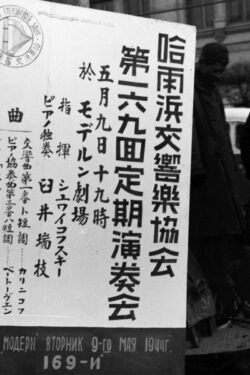 哈爾浜交響樂協会
第一六九回定期演奏会
五月九日十九時
於モデルン劇場
指揮 シュワイコフスキー
ピアノ独奏 臼井瑞枝
曲
交響曲第一番ト短調 カリニコフ
ピアノ協奏曲第三番ハ短調 ベートーヴェン
МОДЕРН ВТОРНИК 9-го МАЯ 1944г.
169-й